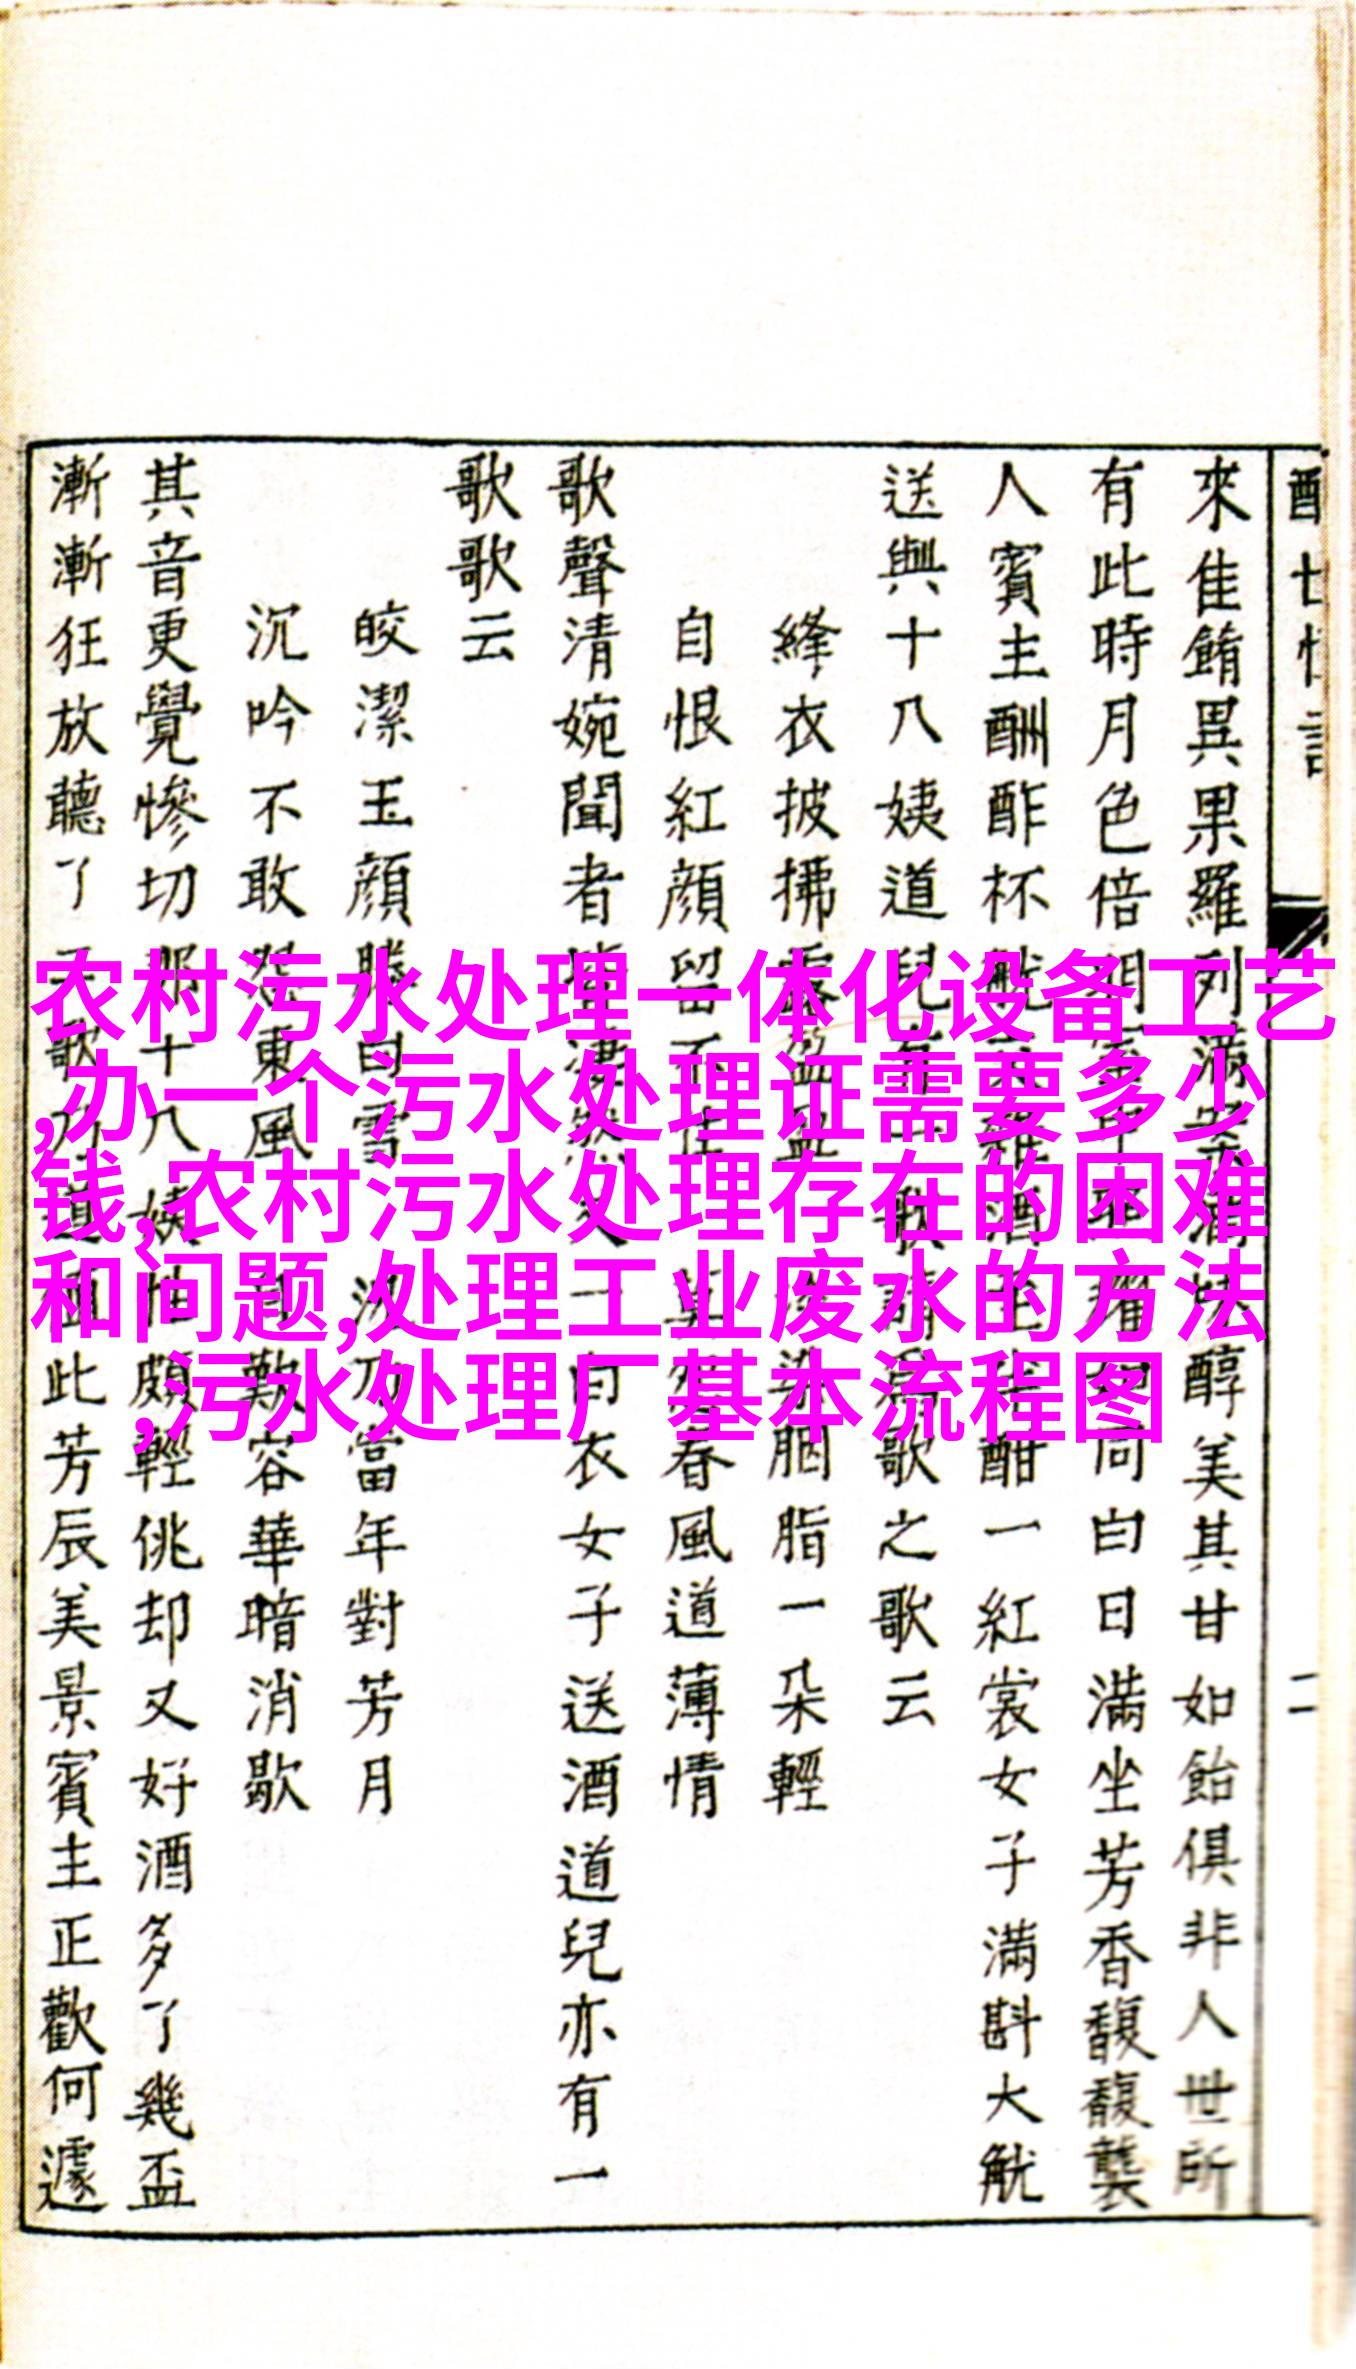 二
來佳餚異果羅列滿醇美其甘如飴俱非人世所
有此時月色倍明同白日滿坐芳香馥馥襲
人賓主酬酢杯觥酒酣一紅裳女子滿斟大觥
送與十八姨道兒有一歌請爲歌之歌云
絳衣披拂露盈盈胭脂一朵輕
自恨紅顏留不住春風道薄情
歌聲清婉聞者淒然又一白衣女子送酒道兒亦有一
歌歌云
皎潔玉顏勝白雪況乃當年對芳月
沉吟不敢怨東風自歎容華暗消歇
其音更覺慘切那十八姨性頗輕佻却又好酒多了幾盃
漸漸狂放聽了二歌乃道值此芳辰美景賓主正歡何遽
农村污水处理一体化设备工艺
,办一个污水处理证需要多少
钱,农村污水处理存在的困难
和问题,处理工业废水的方法
,污水处理厂基本流程图